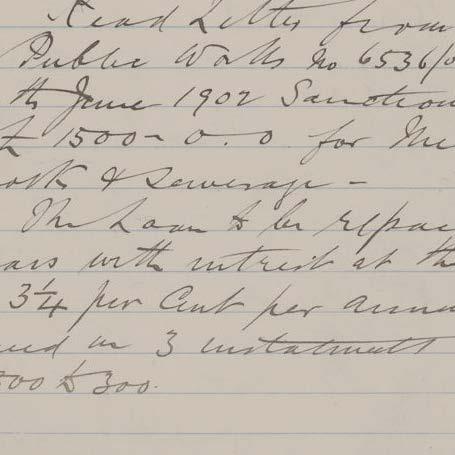 Read Letter from
Public Works No 6536/0
th June 1902 Sanction
£ 1500-0.0 for the
& Sewerage -
The Loan to be repai
ars with interest at the
3¼ per Cent per annu
in 3 instalments
500 & 300.